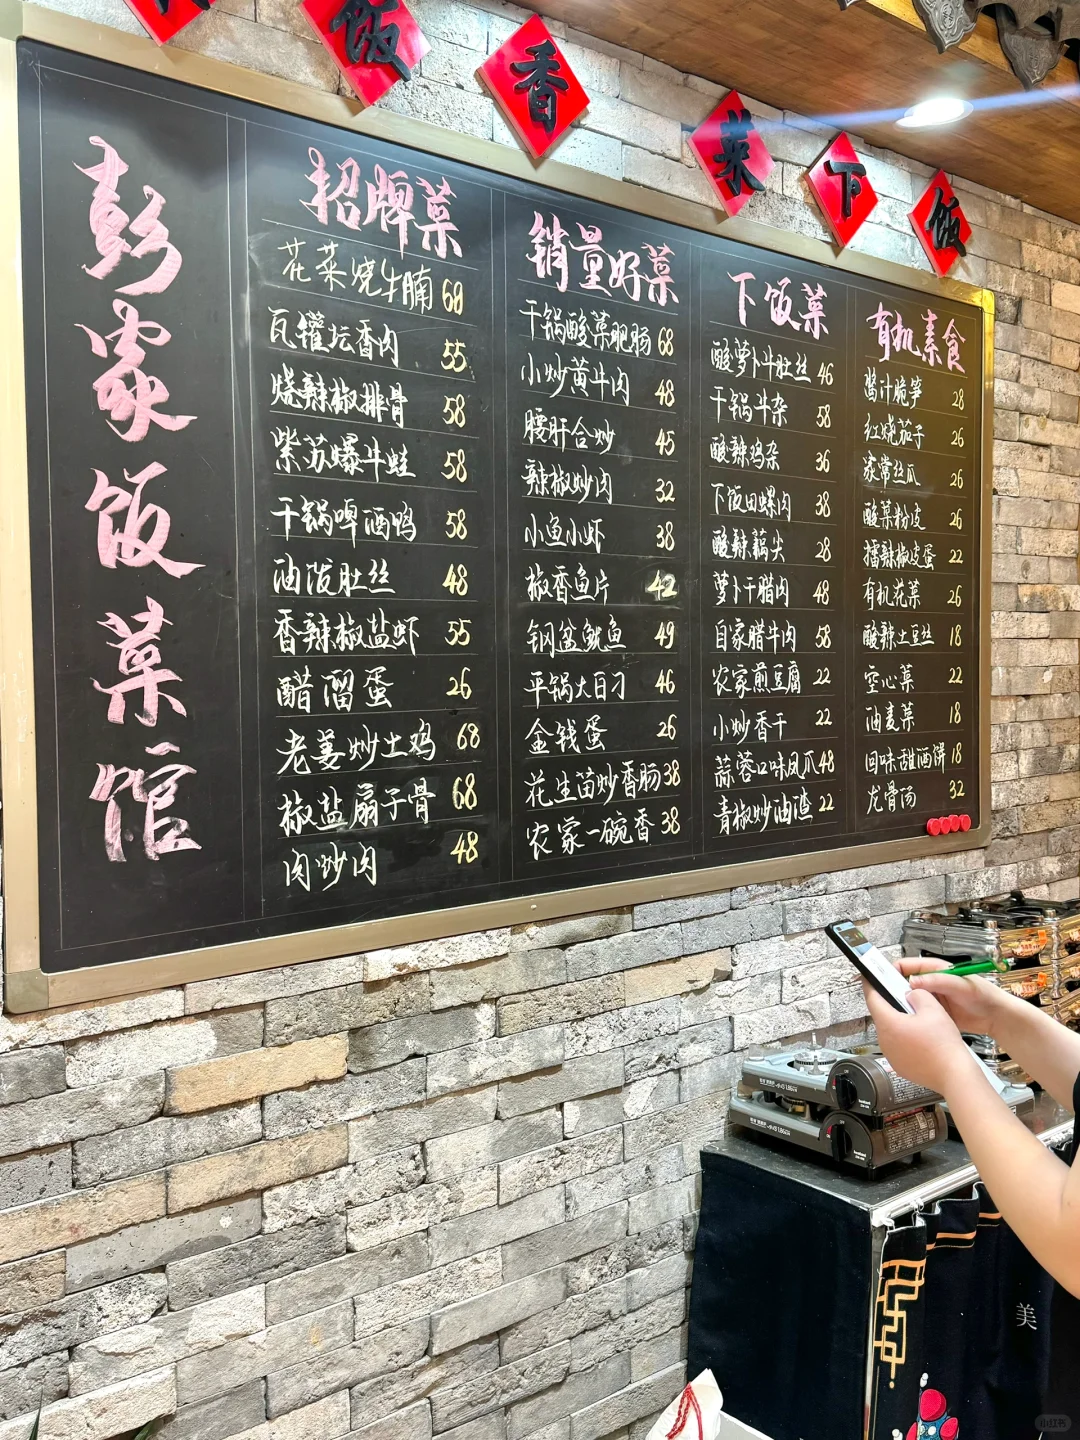 饭
香
菜
下
饭
彭家饭菜馆
招牌菜
花菜烧牛腩 68
瓦罐坛香肉 55
烧辣椒排骨 58
紫苏爆牛蛙 58
干锅啤酒鸭 58
油泼肚丝 48
香辣椒盐虾 55
醋溜蛋 26
老姜炒土鸡 68
椒盐扇子骨 68
肉炒肉 48
销量好菜
干锅酸菜肥肠 68
小炒黄牛肉 48
腰肝合炒 45
辣椒炒肉 32
小鱼小虾 38
椒香鱼片 42
钢盆鱿鱼 49
平锅大白刁 46
金钱蛋 26
花生苗炒香肠 38
农家一碗香 38
下饭菜
酸萝卜牛肚丝 46
干锅牛杂 58
酸辣鸡杂 36
下饭田螺肉 38
酸辣藕尖 28
萝卜干腊肉 48
自家腊牛肉 58
农家煎豆腐 22
小炒香干 22
蒜蓉口味凤爪 48
青椒炒油渣 22
有机素食
酱汁脆笋 28
红烧茄子 26
家常丝瓜 26
酸菜粉皮 26
擂辣椒皮蛋 22
有机花菜 26
酸辣土豆丝 18
空心菜 22
油麦菜 18
回味甜酒饼 18
龙骨汤 32
美
小红书